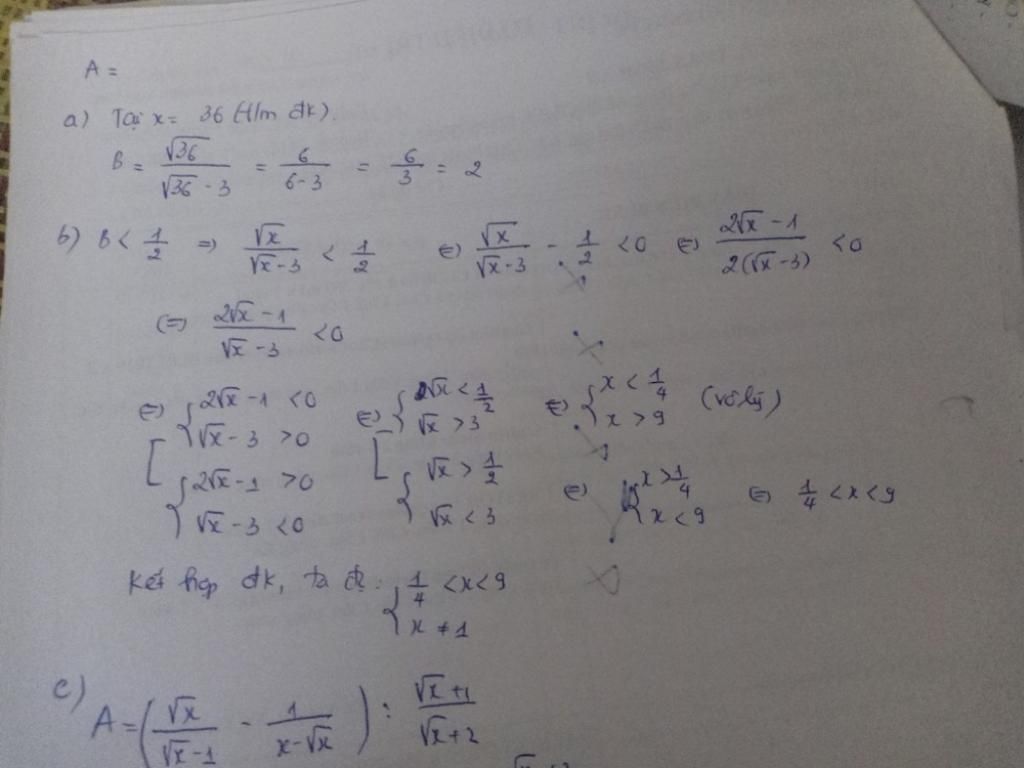 A =
a) Tại x = 36 (t/m đk).
B = √36/(√36 - 3) = 6/(6-3) = 6/3 = 2
b) B < 1/2 => √x/(√x-3) < 1/2 (=) √x/(√x-3) - 1/2 < 0 (=) (2√x - 1)/(2(√x-3)) < 0
(=) (2√x - 1)/(√x - 3) < 0
(=) [ { 2√x - 1 < 0 (=) [ { √x < 1/2 (=) { x < 1/4 (vô lý)
√x - 3 > 0 √x > 3 x > 9
{ 2√x - 1 > 0 { √x > 1/2 (=) { x > 1/4 (=) 1/4 < x < 9
√x - 3 < 0 √x < 3 x < 9
Kết hợp đk, ta đc: { 1/4 < x < 9
x ≠ 1
c) A = (√x/(√x-1) - 1/(x-√x)) : (√x+1)/(√x+2)